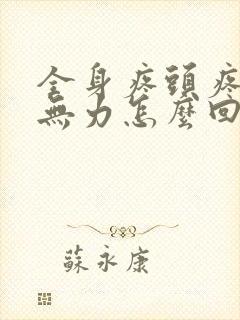 全身疼頭疼
無力怎麼回
蘇永康